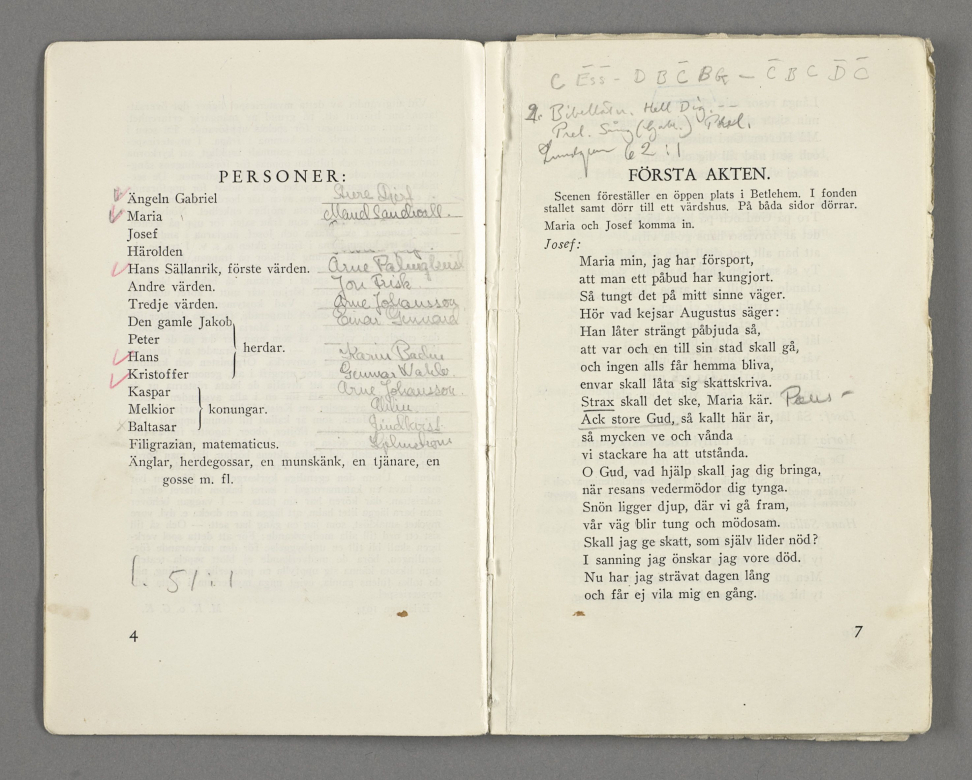 PERSONER:
Ängeln Gabriel
Maria Maud Sandwall.
Josef
Härolden
Hans Sällanrik, förste värden. Arne
Andre värden. Jon Frisk
Tredje värden. Arne Johansson
Den gamle Jakob Einar Gennard
Peter
herdar.
Hans Karin Badin
Kristoffer Gunnar Wahle
Kaspar Arne Johansson
Melkior konungar.
Baltasar Lindkvist
Filigrazian, matematicus.
Änglar, herdegossar, en munskänk, en tjänare, en
gosse m. fl.
51:1
4
C Ess - D B C B G - C B C D C
Hell Dig. --
Prel. Sång (Gabr.)
Lundgren 62:1
FÖRSTA AKTEN.
Scenen föreställer en öppen plats i Betlehem. I fonden
stallet samt dörr till ett värdshus. På båda sidor dörrar.
Maria och Josef komma in.
Josef:
Maria min, jag har försport,
att man ett påbud har kungjort.
Så tungt det på mitt sinne väger.
Hör vad kejsar Augustus säger:
Han låter strängt påbjuda så,
att var och en till sin stad skall gå,
och ingen alls får hemma bliva,
envar skall låta sig skattskriva.
Strax skall det ske, Maria kär. Paus -
Ack store Gud, så kallt här är,
så mycken ve och vånda
vi stackare ha att utstånda.
O Gud, vad hjälp skall jag dig bringa,
när resans vedermödor dig tynga.
Snön ligger djup, där vi gå fram,
vår väg blir tung och mödosam.
Skall jag ge skatt, som själv lider nöd?
I sanning jag önskar jag vore död.
Nu har jag strävat dagen lång
och får ej vila mig en gång.
7